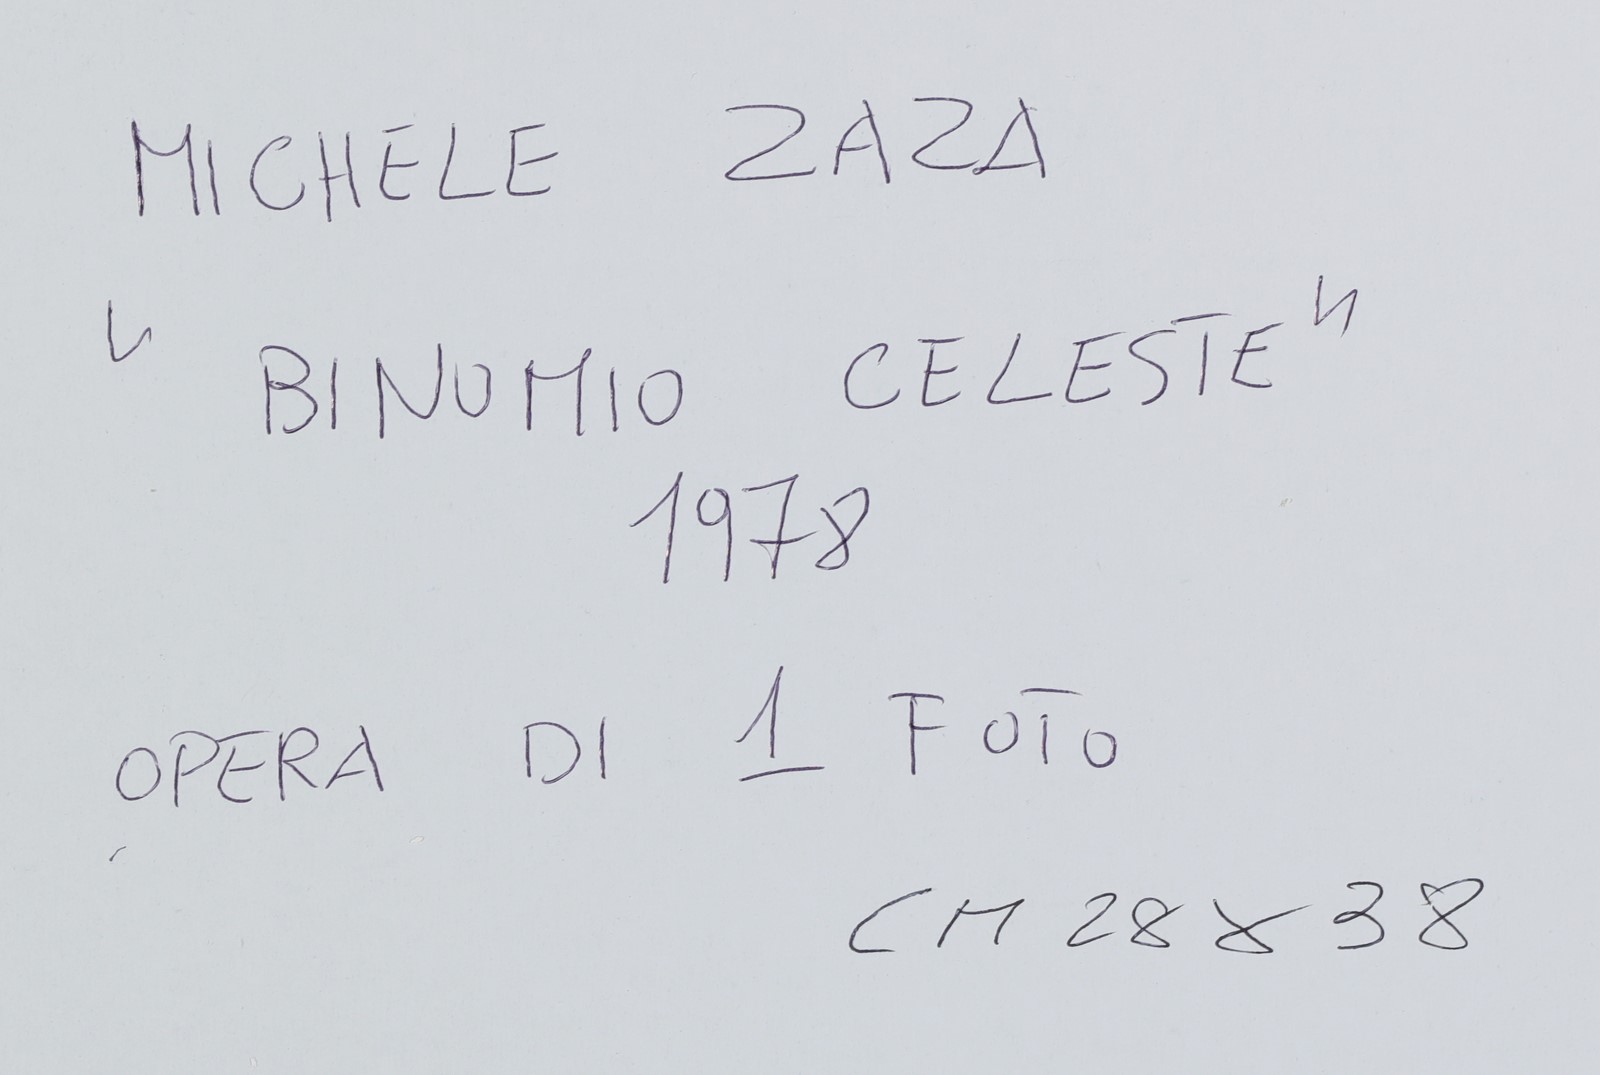 MICHELE ZAZA
"BINOMIO CELESTE"
1978
OPERA DI 1 FOTO
CM 28X38